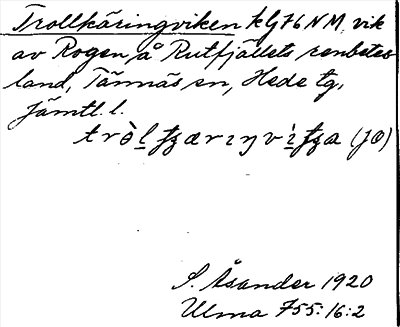 Trollkäringviken k G76 NM, vik
av Rogen, å Rutfjällets renbetes
land, Tännäs sn, Hede tg,
Jämtl. l.
(JO)
S. Åsander 1920
Ulma 755:16:2